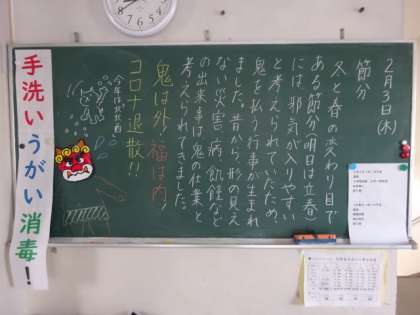 2月3日(木)
節分
冬と春の変わり目で
ある節分(明日は立春)
には、邪気が入りやすい
と考えられていたため、
鬼を払う行事が生まれ
ました。昔から形の見え
ない災害、病、飢饉など
の出来事は鬼の仕業と
考えられてきました。
鬼は外!福は内!
コロナ退散!!
今年は北北西
手洗いうがい消毒!